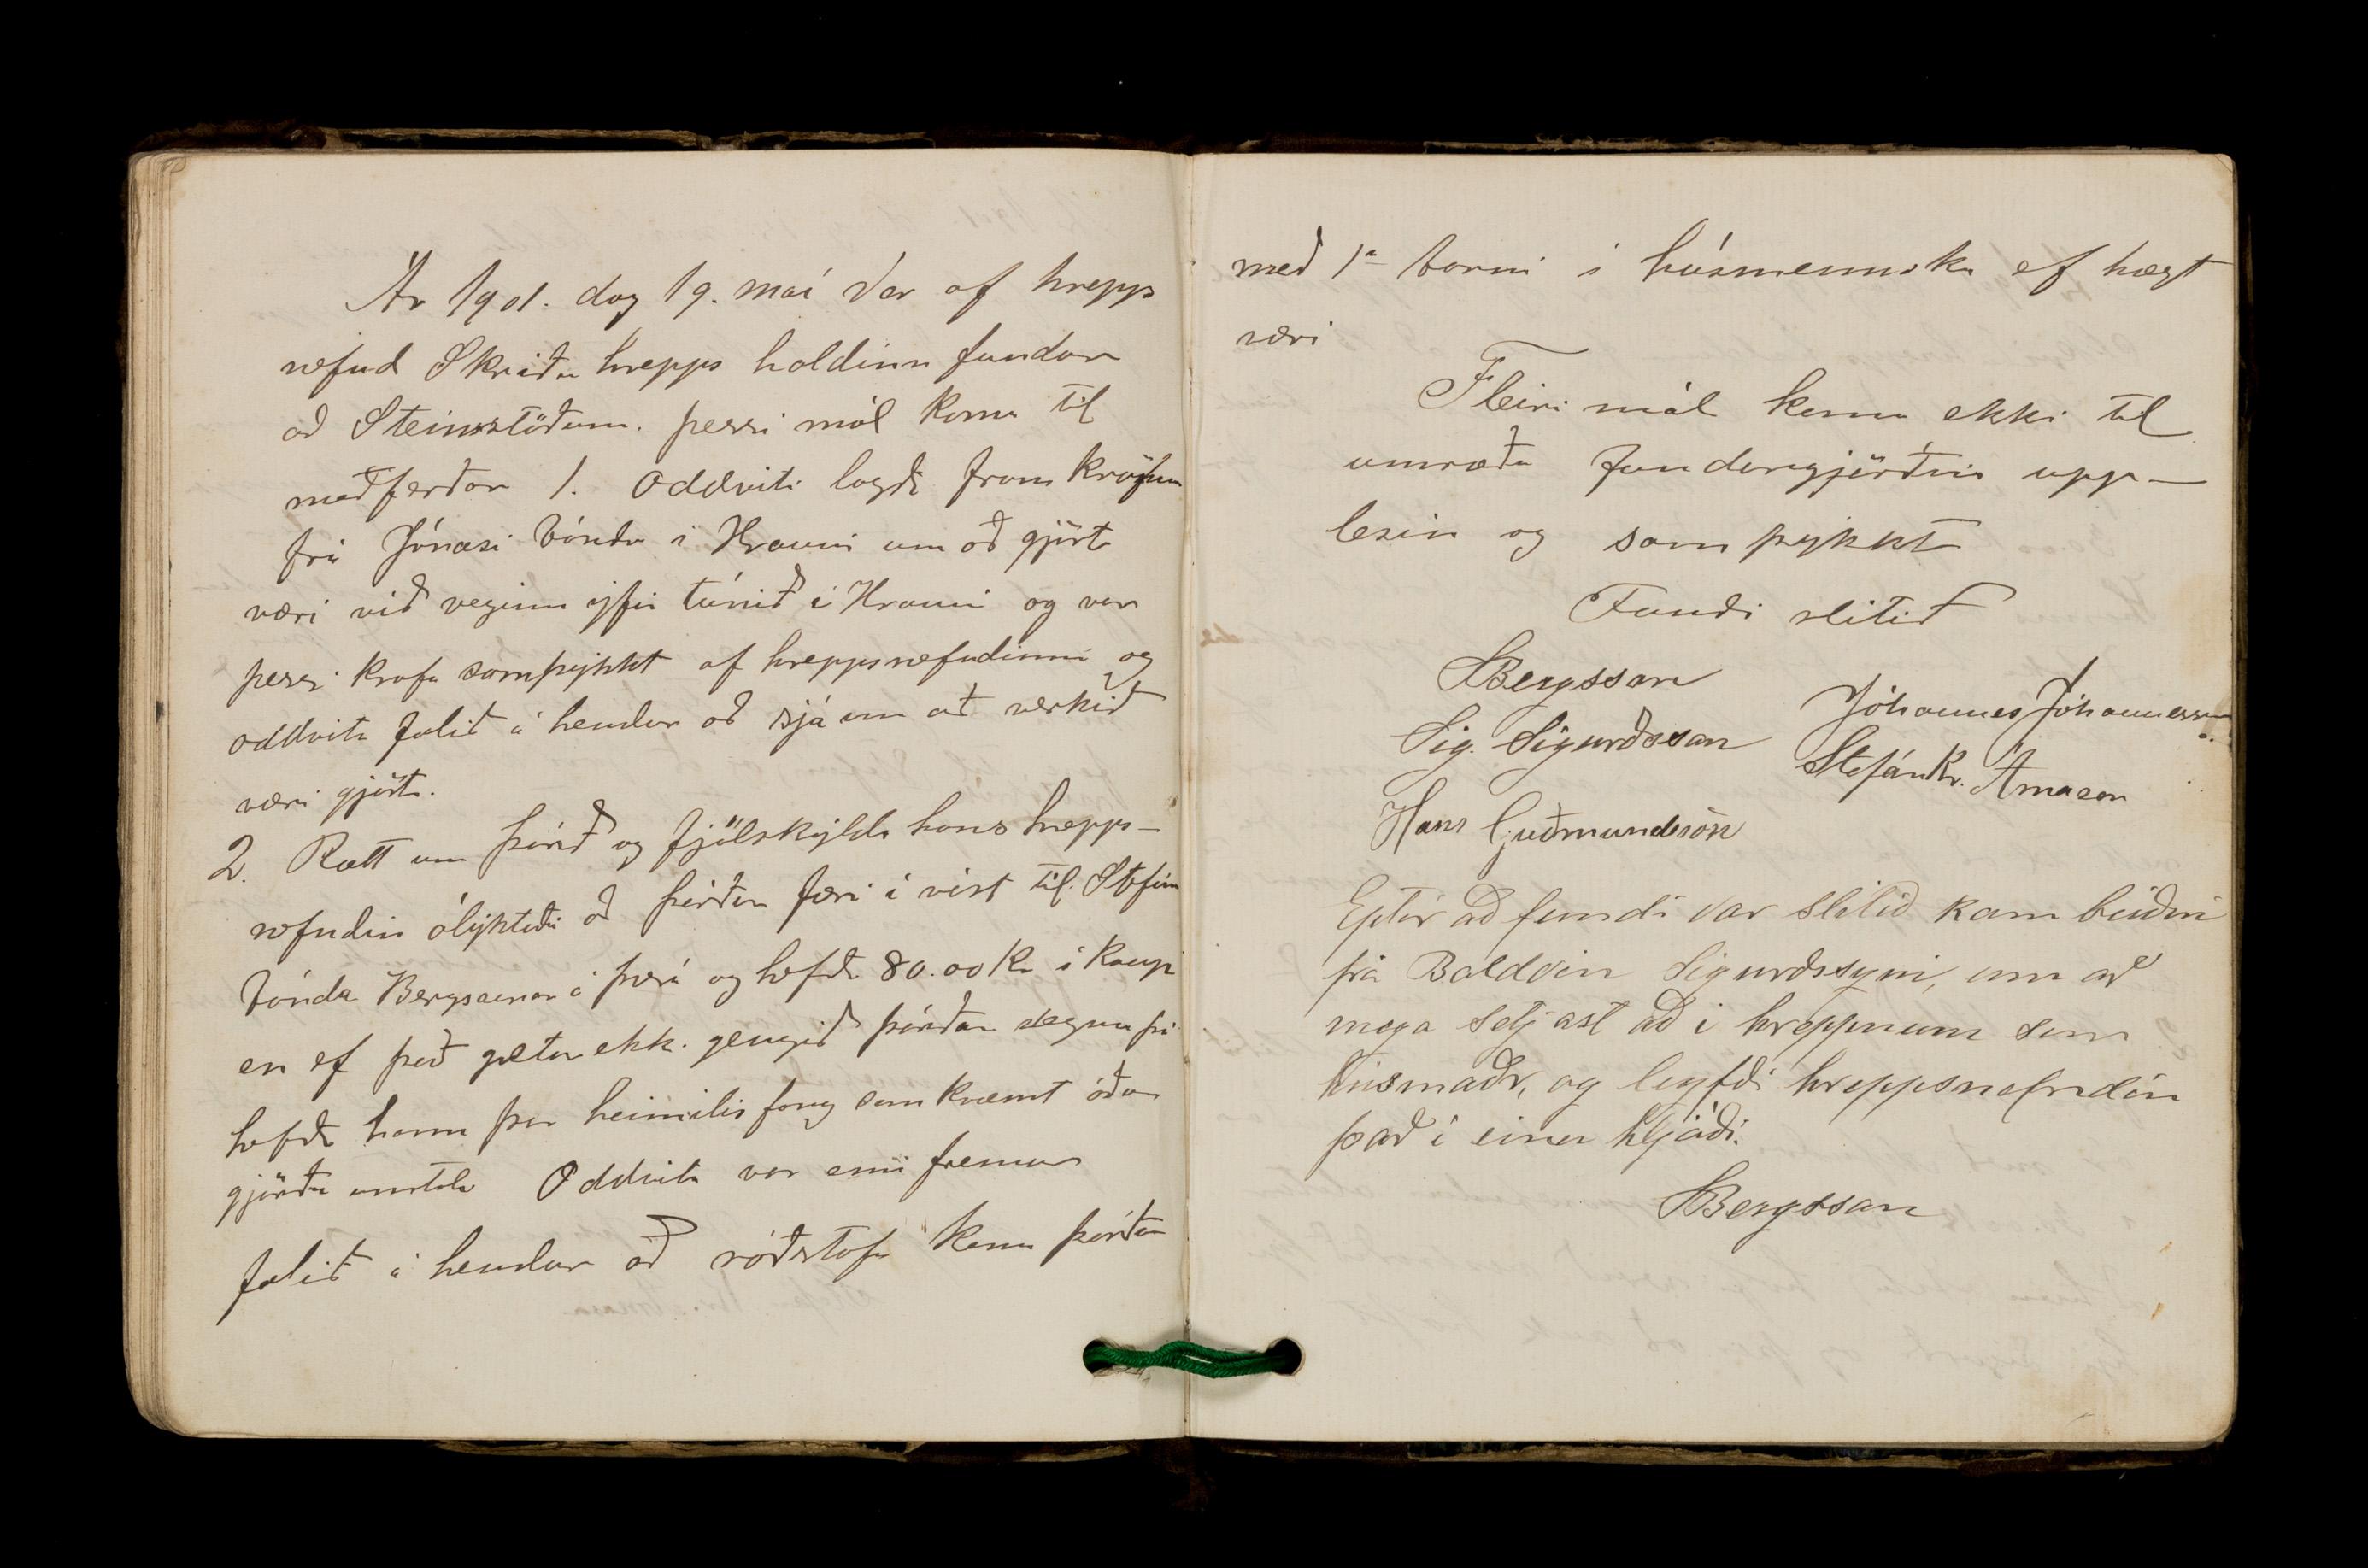 Ár 1901. dag 19. maí var af hrepps
nefnd Skriðu hrepps haldinn fundur
að Steinsstöðum. þessi mál komu til
meðferðar 1. Oddviti lagði fram kröfum
frá Jónasi bónda í Hrauni um að gjört
væri við veginn yfir túnið í Hrauni og var
þessi krafa samþykkt af hreppsnefndinni og
oddvita falið á hendur að sjá um að verkið
væri gjört.
2. Rætt um Þórð og fjölskyldu hans hrepps-
nefndin ólyktaði að Þórður færi í vist til Stefáns
bónda Bergssonar á Þverá og hefði 80.00 Kr í kaup
en ef það gætur ekki gengið Þórðar vegna þá
hefði hann þar heimilisfang samkvæmt áður
gjörðu umtali Oddvita var enn fremur
falið á hendur að ráðstafa konu Þórðar
með 1u barni í húsmennsku ef hægt
væri
Fleiri mál komu ekki til
umræðu fundargjörðin upp-
lesin og samþykkt
Fundi slitið
SBergsson
Jóhannes Jóhannesson
Sig. Sigurðsson
Stefán Kr. Árnason
Hans Guðmundsson
Eptir að fundi var slitið kom beiðni
frá Baldvin Sigurðssyni, um að
mega setjast að í hreppnum sem
húsmaðr, og leyfði hreppsnefndin
það í einu hljóði.
SBergsson